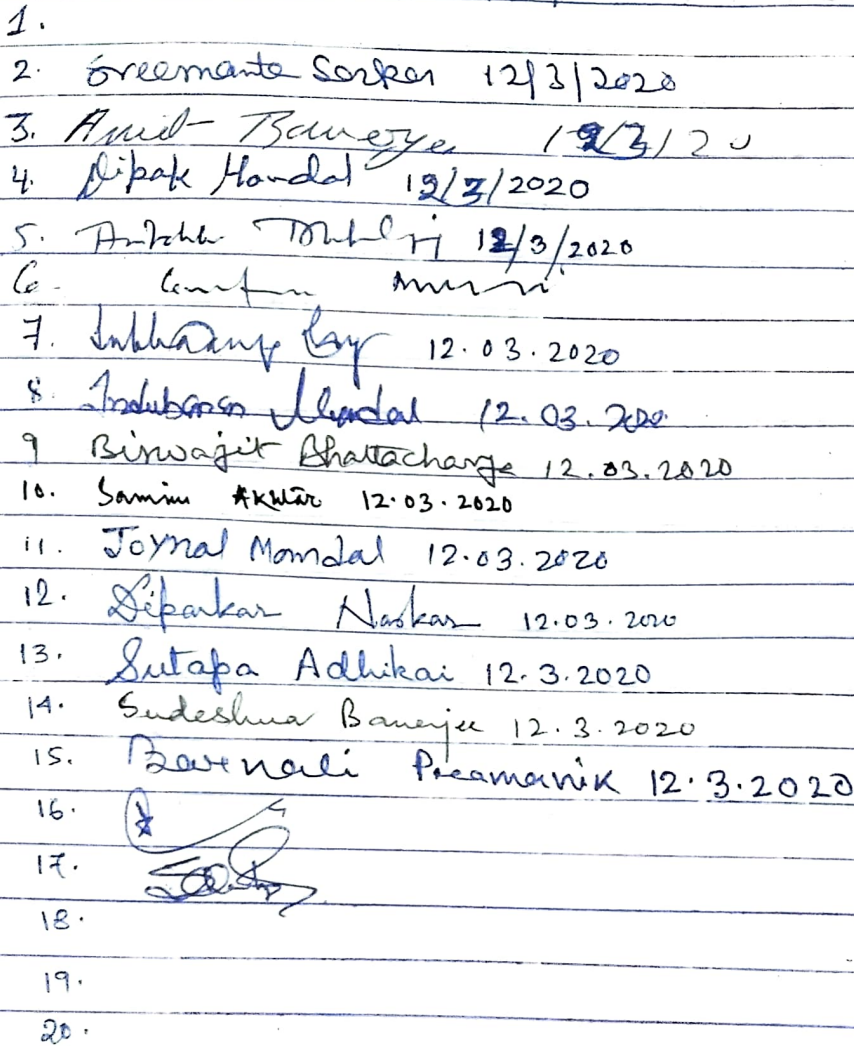 1.
2. Sreemanta Sarkar 12/3/2020
3. Amit Banerjee 12/3/20
4. Dipak Mondal 12/3/2020
5. 12/3/2020
6.
7. Ray 12.03.2020
8. Mondal 12.03.2020
9 Biswajit Bhattacharje 12.03.2020
10. Samim AKhtar 12.03.2020
11. Joynal Momdal 12.03.2020
12. Dipankar Naskar 12.03.2020
13. Sutapa Adhikai 12.3.2020
14. Sudeshna Banerjee 12.3.2020
15. Barnali Pramanik 12.3.2020
16.
17.
18.
19.
20.